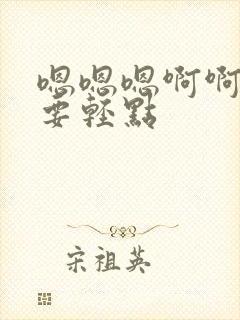 嗯嗯嗯啊啊
要轻點
宋祖英